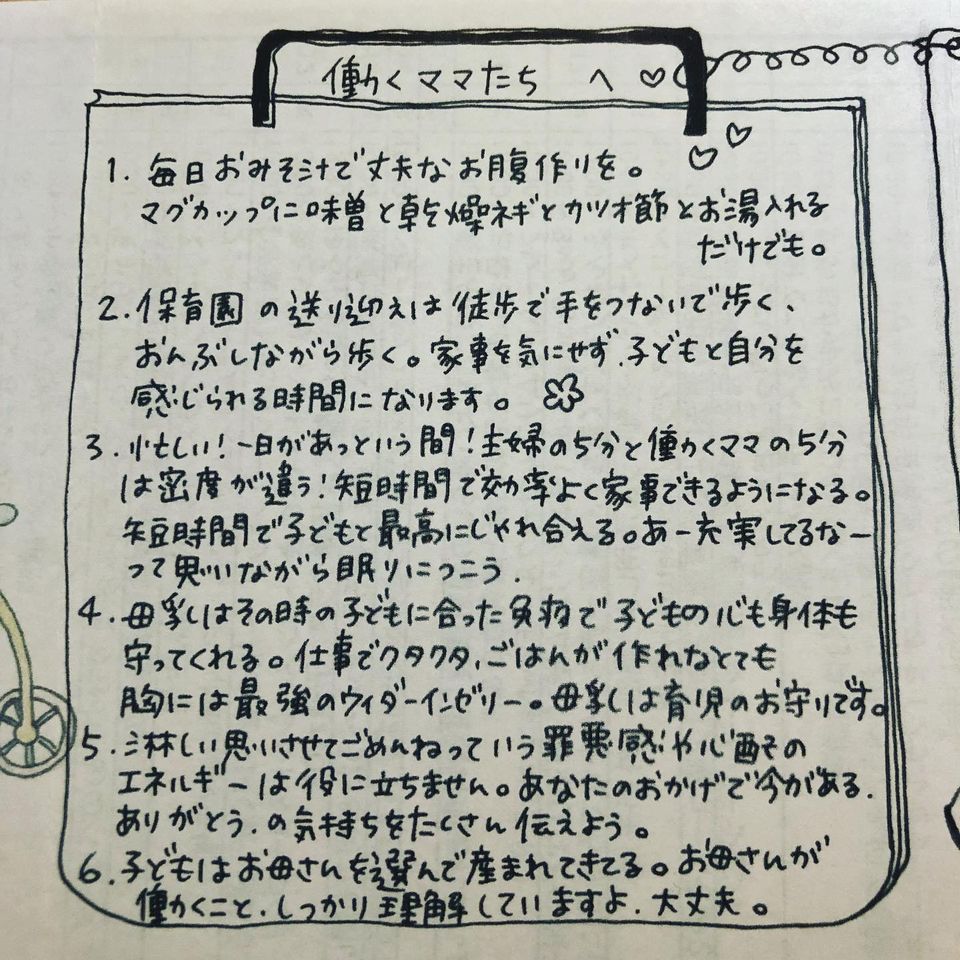 働くママたち へ♡
1. 毎日おみそ汁で丈夫なお腹作りを。
マグカップに味噌と乾燥ネギとカツオ節とお湯入れる
だけでも。
2. 保育園の送り迎えは徒歩で手をつないで歩く、
おんぶしながら歩く。家事を気にせず、子どもと自分を
感じられる時間になります。
3. 忙しい!一日があっという間!主婦の5分と働くママの5分
は密度が違う!短時間で効率よく家事できるようになる。
短時間で子どもと最高にじゃれ合える。あー充実してるなー
って思いながら眠りにつこう.
4. 母乳はその時の子どもに合った食物で子どもの心も身体も
守ってくれる。仕事でクタクタ、ごはんが作れなとても
胸には最強のウィダーインゼリー。母乳は育児のお守りです。
5. 淋しい思いさせてごめんねっていう罪悪感や心配その
エネルギーは役に立ちません。あなたのおかげで今がある.
ありがとう.の気持ちをたくさん伝えよう。
6. 子どもはお母さんを選んで産まれてきてる。お母さんが
働くこと.しっかり理解していますよ.大丈夫。